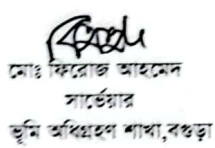 মোঃ ফিরোজ আহমেদ
সার্ভেয়ার
ভূমি অধিগ্রহণ শাখা,বগুড়া